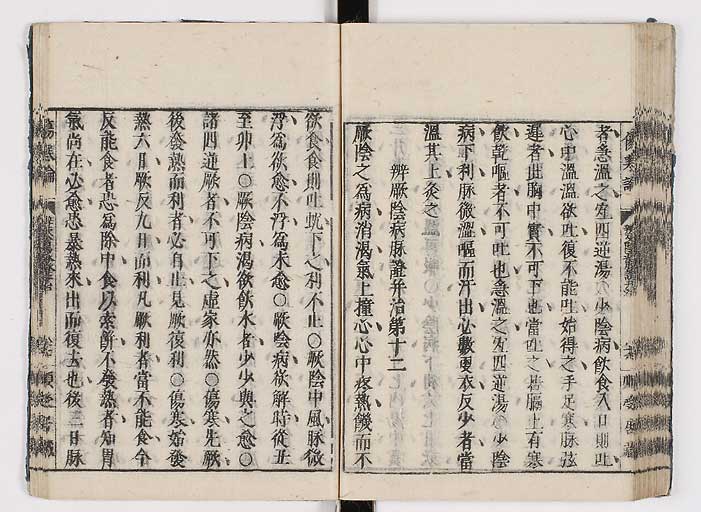 者急溫之宜四逆湯○少陰病飲食入口則吐
心中溫溫欲吐復不能吐始得之手足寒脉弦
遲者此胸中實不可下也當吐之若膈上有寒
飲乾嘔者不可吐也急溫之宜四逆湯○少陰
病下利脉微濇嘔而汗出必數更衣反少者當
溫其上灸之
辨厥陰病脉證并治第十二
厥陰之為病消渴氣上撞心心中疼熱饑而不
欲食食則吐蚘下之利不止○厥陰中風脉微
浮為欲愈不浮為未愈○厥陰病欲解時從丑
至卯上○厥陰病渴欲飲水者少少與之愈○
諸四逆厥者不可下之虛家亦然○傷寒先厥
後發熱而利者必自止見厥復利○傷寒始發
熱六日厥反九日而利凡厥利者當不能食今
反能食者恐為除中食以索餅不發熱者知胃
氣尚在必愈恐暴熱來出而復去也後三日脉
傷寒論